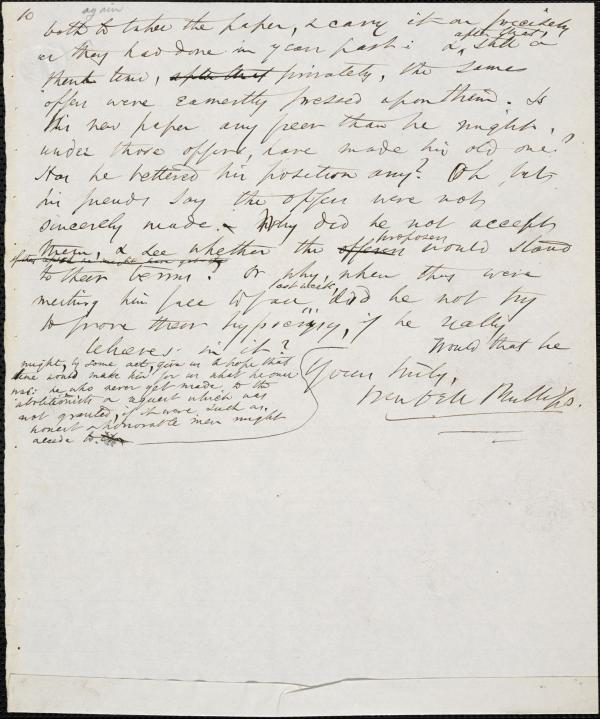 10
again
both to take the paper, & carry it on precisely
as they had done in years past: & still a
after that,
third time, after that privately, the same
offers were earnestly pressed upon them. Is
his new paper any freer than he might,
under those offers, have made his old one?
Has he bettered his position any? Oh, but
his friends say the offers were not
sincerely made. Why did he not accept
them, & see whether the offerers would stand
proposers
to their terms? Or why, when they were
last week,
meeting him face to face, did he not try
to prove their hypocrisy, if he really
believes in it? Would that he
might, by some act, give us a hope that
time would make him for us what he once
was: he who never yet made to the
abolitionists a request which was
not granted, if it were such as
honest & honorable men might
accede to.
Yours truly,
Wendell Phillips.